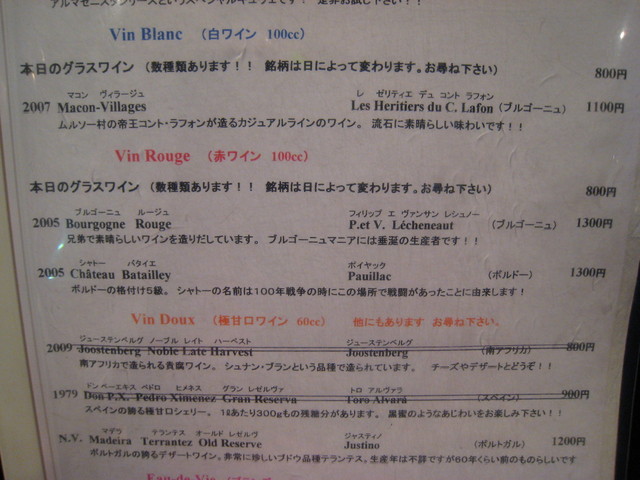 Vin Blanc (白ワイン 100cc)
本日のグラスワイン (数種類あります!! 銘柄は日によって変わります。お尋ね下さい) 800円
マコン ヴィラージュ レ ゼリティエ デュ コント ラフォン
2007 Macon-Villages Les Heritiers du C. Lafon (ブルゴーニュ) 1100円
ムルソー村の帝王コント・ラフォンが造るカジュアルラインのワイン。 流石に素晴らしい味わいです!!
Vin Rouge (赤ワイン 100cc)
本日のグラスワイン (数種類あります!! 銘柄は日によって変わります。お尋ね下さい) 800円
ブルゴーニュ ルージュ フィリップ エ ヴァンサン レシュノー
2005 Bourgogne Rouge P.et V. Lécheneaut (ブルゴーニュ) 1300円
兄弟で素晴らしいワインを造りだしています。 ブルゴーニュマニアには垂涎の生産者です!!
シャトー バタイエ ポイヤック
2005 Château Batailley Pauillac (ボルドー) 1300円
ボルドーの格付け5級。 シャトーの名前は100年戦争の時にこの場所で戦闘があったことに由来します!
Vin Doux (極甘口ワイン 60cc) 他にもあります お尋ね下さい。
ジューステンベルグ ノーブル レイト ハーベスト ジューステンベルグ
2009 Joostenberg Noble Late Harvest Joostenberg (南アフリカ) 800円
南アフリカで造られる貴腐ワイン。 シュナン・ブランという品種で造られています。 チーズやデザートとどうぞ!!
ドン ペーエキス ペドロ ヒメネス グラン レゼルヴァ トロ アルヴァラ
1979 Don P.X. Pedro Ximenez Gran Reserva Toro Alvará (スペイン) 900円
スペインの誇る極甘口シェリー。 1ℓあたり300gもの残糖分があります。 黒蜜のようなあじわいをお楽しみ下さい!!
マデラ テランテス オールド レゼルヴ ジャスティノ
N.V. Madeira Terrantez Old Reserve Justino (ポルトガル) 1200円
ポルトガルの誇るデザートワイン。非常に珍しいブドウ品種テランテス。生産年は不詳ですが60年くらい前のものらしいです